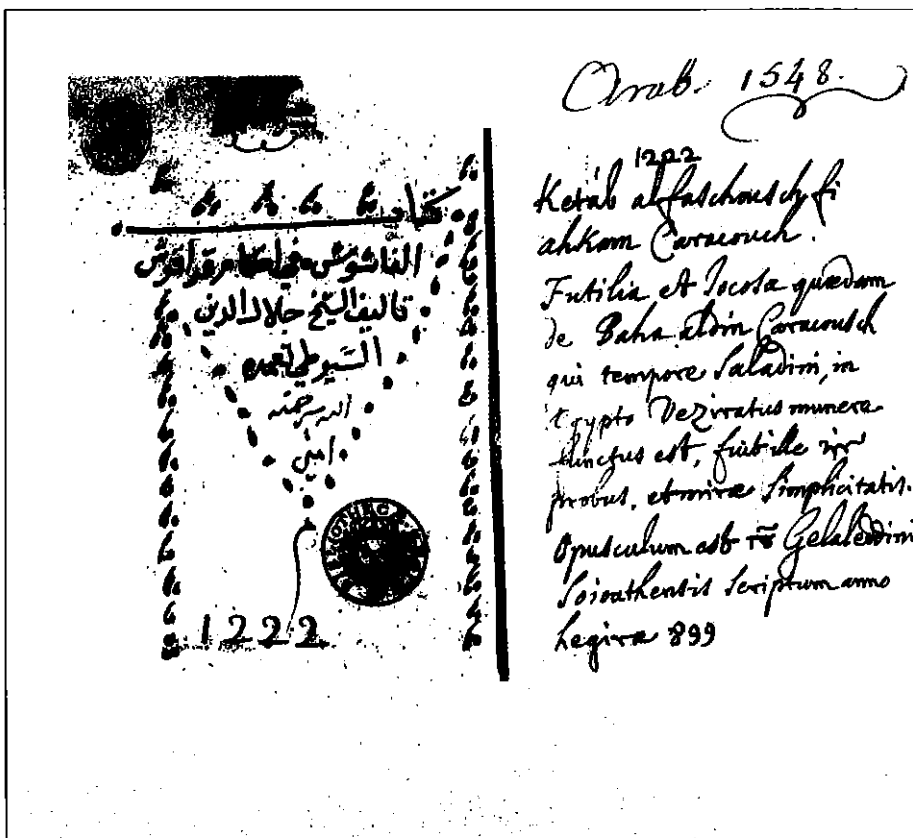 Arab. 1548.
كتاب
الفاشوش في احكام قراقوش
تاليف الشيخ جلال الدين
السيوطي تغمده
الله برحمته
امين
1222
1222
Ketáb alfaschousch fi
ahkam Caracouch.
Futilia et Jocosa quædam
de Baha aldin Caracousch
qui tempore Saladini, in
Egypto Veziratus munera
functus est, fuit ille vir
probus, et miræ Simplicitatis.
Opusculum est Gelaleddini
Soiouthensis Scriptum anno
hegiræ 899